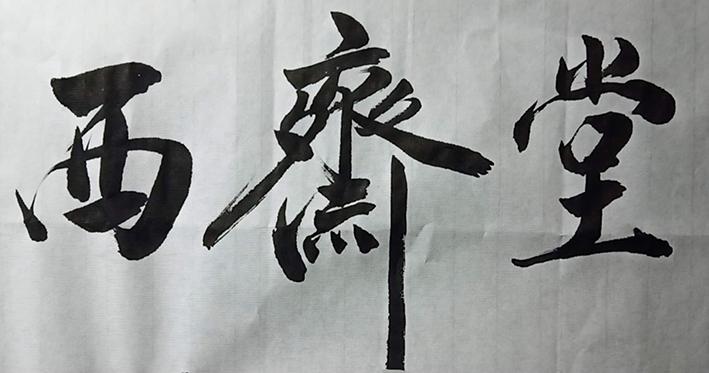 西齋堂